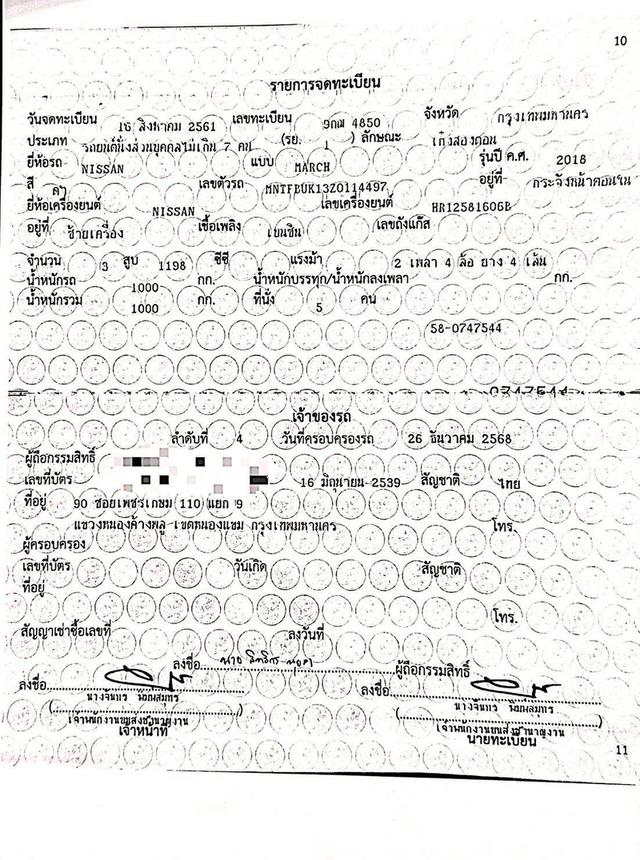 10
รายการจดทะเบียน
วันจดทะเบียน 16 สิงหาคม 2561 เลขทะเบียน 9กฌ 4850 จังหวัด กรุงเทพมหานคร
ประเภท รถยนต์นั่งส่วนบุคคลไม่เกิน 7 คน (รย. 1) ลักษณะ เก๋งสองตอน
ยี่ห้อรถ NISSAN แบบ MARCH รุ่นปี ค.ศ. 2018
สี ดำ เลขตัวรถ MNTFBUK13Z0114497 อยู่ที่ กระจังหน้าตอนใน
ยี่ห้อเครื่องยนต์ NISSAN เลขเครื่องยนต์ HR12581606B
อยู่ที่ ซ้ายเครื่อง เชื้อเพลิง เบนซิน เลขถังแก๊ส
จำนวน 3 สูบ 1198 ซีซี แรงม้า 2 เพลา 4 ล้อ ยาง 4 เส้น
น้ำหนักรถ 1000 กก. น้ำหนักบรรทุก/น้ำหนักลงเพลา กก.
น้ำหนักรวม 1000 กก. ที่นั่ง 5 คน
58-0747544
0747544
เจ้าของรถ
ลำดับที่ 4 วันที่ครอบครองรถ 26 ธันวาคม 2568
ผู้ถือกรรมสิทธิ์
เลขที่บัตร 16 มิถุนายน 2539 สัญชาติ ไทย
ที่อยู่ 90 ซอยเพชรเกษม 110 แยก 9
แขวงหนองค้างพลู เขตหนองแขม กรุงเทพมหานคร โทร.
ผู้ครอบครอง
เลขที่บัตร วันเกิด สัญชาติ
ที่อยู่
โทร.
สัญญาเช่าซื้อเลขที่ ลงวันที่
ลงชื่อ นาย ผู้ถือกรรมสิทธิ์
ลงชื่อ ลงชื่อ
นางจันทร พิมพสมุทร นางจันทร พิมพสมุทร
เจ้าพนักงานขนส่งชำนาญงาน เจ้าพนักงานขนส่งชำนาญงาน
เจ้าหน้าที่ นายทะเบียน
11